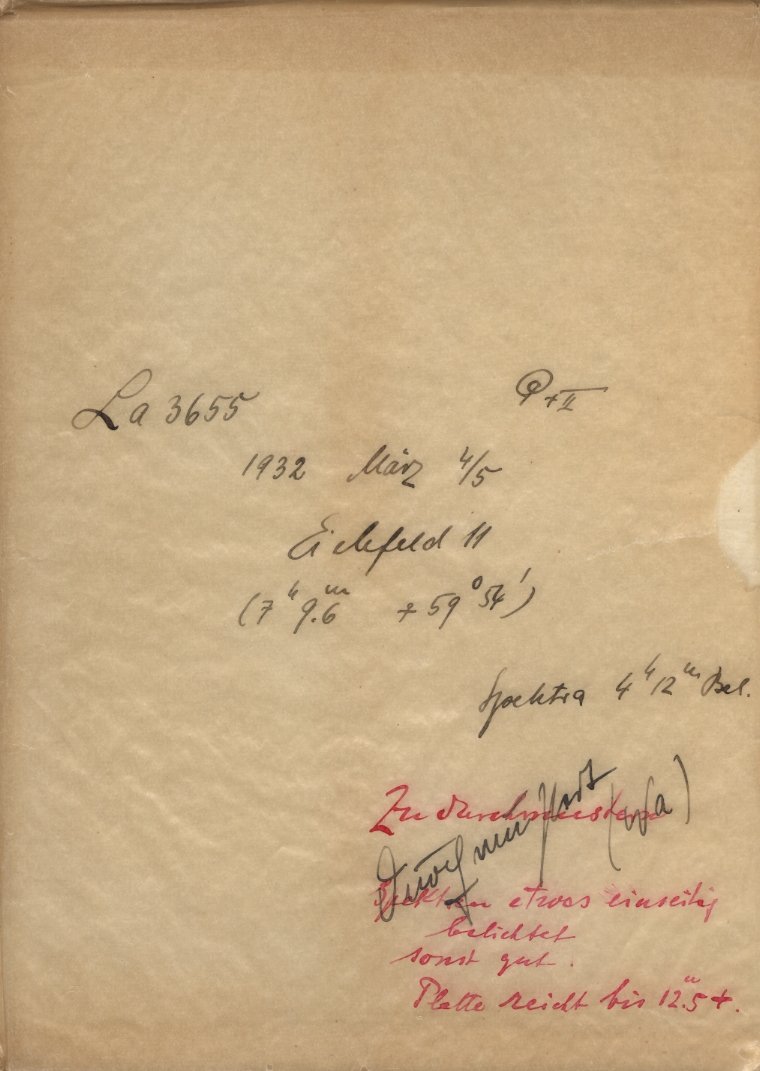 La 3655
P + II
1932 März 4/5
Eichfeld 11
(7ʰ 9.6ᵐ + 59° 54')
Spektra 4ʰ 12ᵐ Bel.
Zu durchmustern
Durchmustert (Wa)
Spektren etwas einseitig
belichtet
sonst gut.
Platte reicht bis 12ᵐ.5 +.